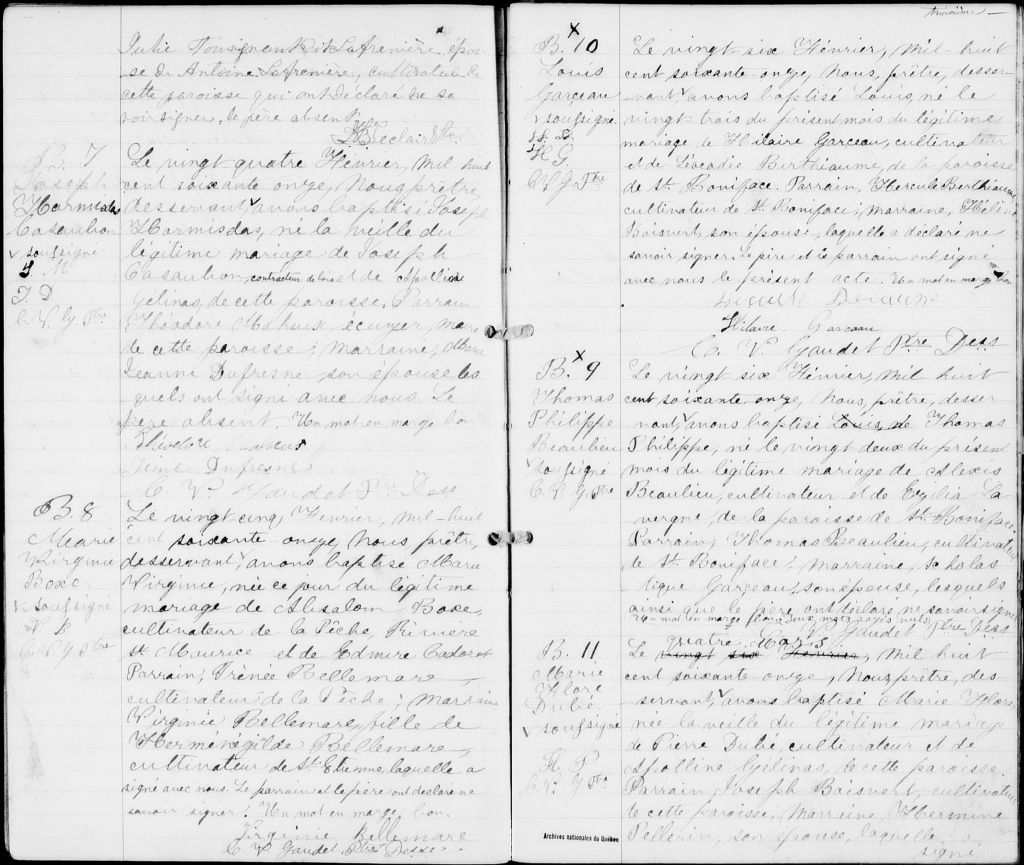 Julie Tousignant dit Lafrenière, épou-
se de Antoine Lafrenière, cultivateur de
cette paroisse qui ont déclaré ne sa
voir signer, le père absent.
B. 7
Joseph
Hormisdas
Casaubon
soussigné
Le vingt quatre Février, mil huit
cent soixante onze, Nous prêtre,
desservant, avons baptisé Joseph
Hormisdas, né la veille du
légitime mariage de Joseph
Casaubon, contracteur de bois et de Apolline
Gélinas, de cette paroisse. Parrain
Théodore Maheux, écuyer, maire
de cette paroisse; Marraine, Marie
Jeanne Dufresne, son épouse les
quels ont signé avec nous. Le
père absent. Un mot en marge bon
Dufresne
C. V. Gaudet Ptre Dess
B. 8
Marie
Virginie
Boxe
soussigné
V B
C. V. G. Ptre
Le vingt-cinq Février, mil-huit
cent soixante onze, Nous prêtre,
desservant, avons baptisé Marie
Virginie, née ce jour du légitime
mariage de Absalom Boxe,
cultivateur de la Pêche, Rivière
St Maurice et de Edmire Cadoret
Parrain, Irénée Bellemare
cultivateur de la Pêche; Marraine
Virginie Bellemare, fille de
Herménégilde Bellemare,
cultivateur de St. Etienne, laquelle a
signé avec nous. Le parrain et le père ont déclaré ne
savoir signer. Un mot en marge, bon.
Virginie Bellemare
C. V. Gaudet, Ptre Dess
troisième
B. 10
Louis
Garceau
soussigné
H. G.
C. V. G. Ptre
Le vingt-six Février, mil-huit
cent soixante-onze, Nous, prêtre, desser-
vant, avons baptisé Louis, né le
vingt-trois du présent mois du légitime
mariage de Hilaire Garceau, cultivateur
et de Léocadie Berthiaume, de la paroisse
de St. Boniface. Parrain, Hercule Berthiaume,
cultivateur de St. Boniface; marraine,
Boisvert, son épouse, laquelle a déclaré ne
savoir signer. Le père et le parrain ont signé
avec nous le présent acte. Un mot en marge bon
Hilaire Garceau
C. V. Gaudet Ptre Dess
B. 9
Thomas
Philippe
Beaulieu
soussigné
C. V. G. Ptre
Le vingt six Février, Mil huit
cent soixante-onze, Nous, prêtre, desser
vant, avons baptisé Louis, né Thomas
Philippe, né le vingt deux du présent
mois du légitime mariage de Alexis
Beaulieu, cultivateur et de Exilia La
vergne, de la paroisse de St. Boniface.
Parrain, Thomas Beaulieu, cultivateur
de St. Boniface; marraine, Scholas
tique Garceau, son épouse, lesquels
ainsi que le père, ont déclaré ne savoir signer
Un mot en marge bon. Deux mots rayés nuls.
C. V. Gaudet Ptre Dess
B. 11
Marie
Flore
Dubé
soussigné
C. V. G. Ptre
quatre Mars
Le vingt six Février, mil huit
cent soixante-onze, Nous prêtre, des-
servant, avons baptisé Marie Flore
née la veille du légitime mariage
de Pierre Dubé, cultivateur et de
Apolline Gélinas, de cette paroisse.
Parrain, Joseph Boisvert, cultivateur
de cette paroisse, Marraine, Hermine
Pellerin, son épouse, laquelle a
signé
Archives nationales du Québec